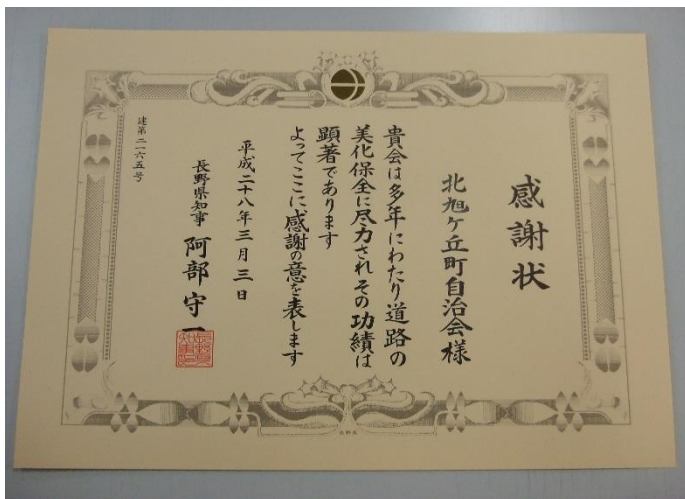 感謝状
北旭ケ丘町自治会様
貴会は多年にわたり道路の
美化保全に尽力されその功績は
顕著であります
よってここに感謝の意を表します
平成二十八年三月三日
長野県知事 阿部守一
建第二一六五号